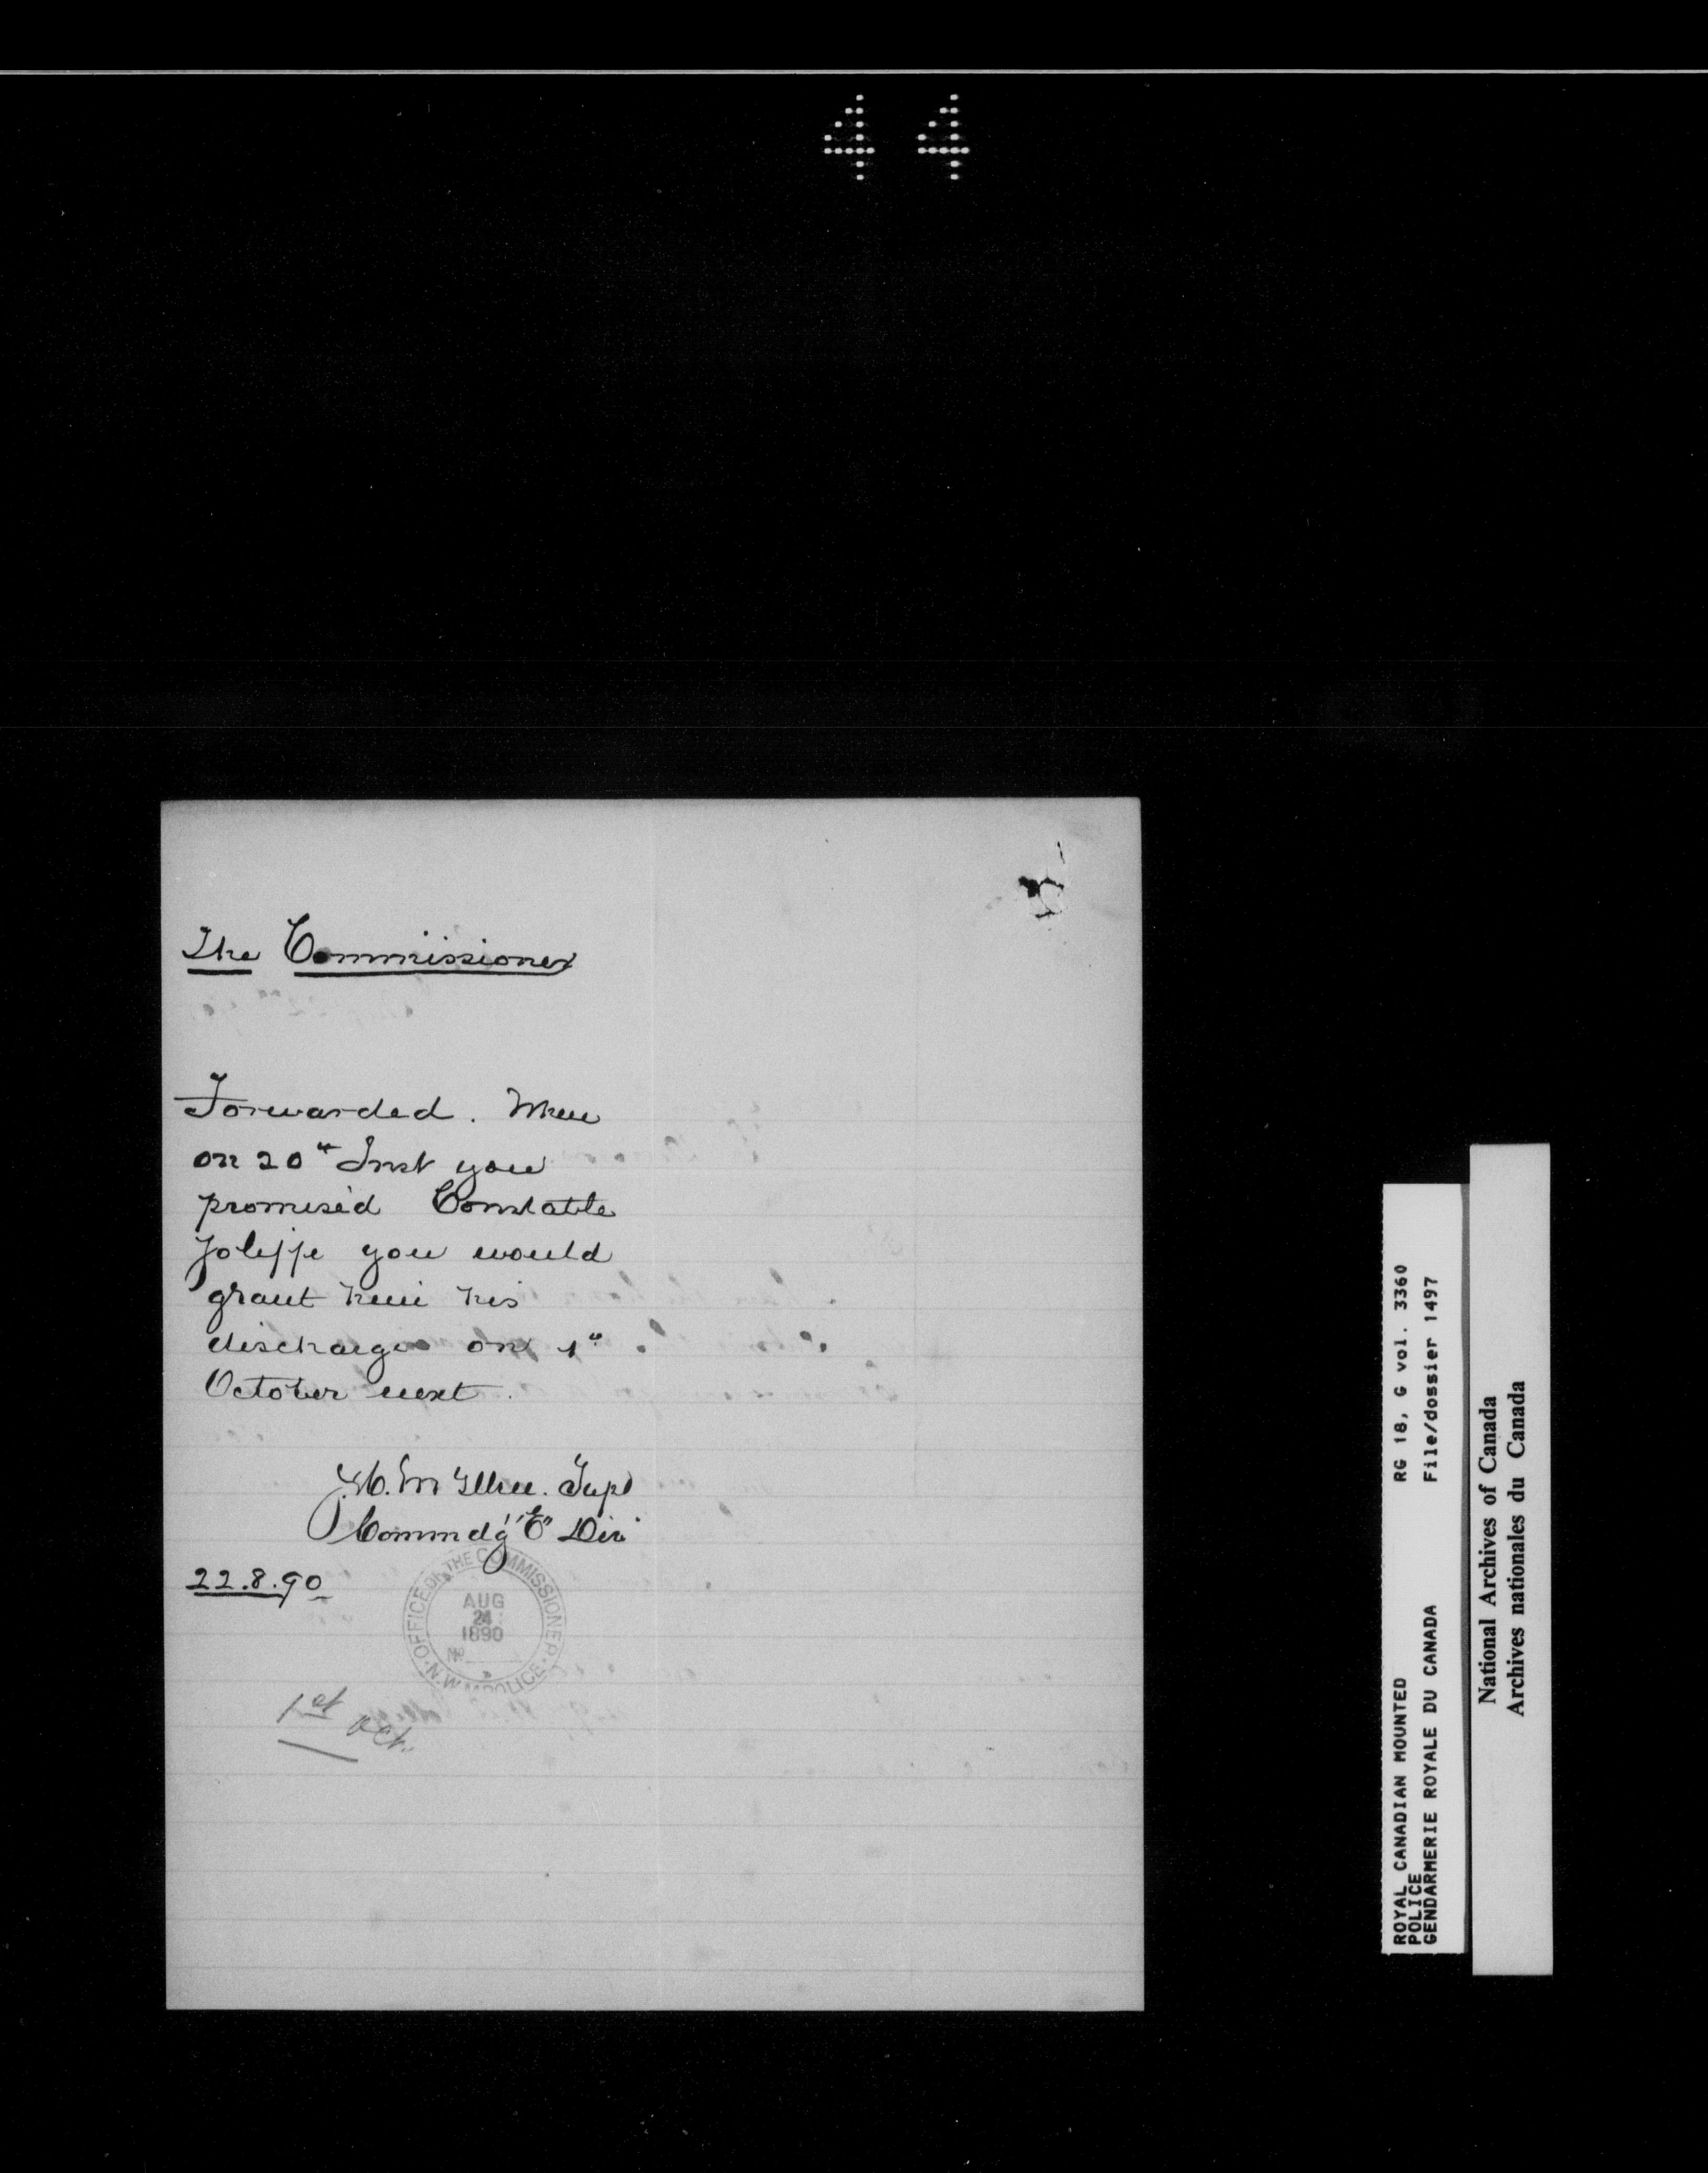 44
The Commissioner
Forwarded. When
on 20th Inst you
promised Constable
Joliffe you would
grant him his
discharge on 1st
October next.
J.H. McIllree. Supt
Commdg "E" Div
22.8.90
OFFICE OF THE COMMISSIONER
AUG
24
1890
No
N.W.M. POLICE
1st Oct.
ROYAL CANADIAN MOUNTED RG 18, G vol. 3360
POLICE File/dossier 1497
GENDARMERIE ROYALE DU CANADA
National Archives of Canada
Archives nationales du Canada